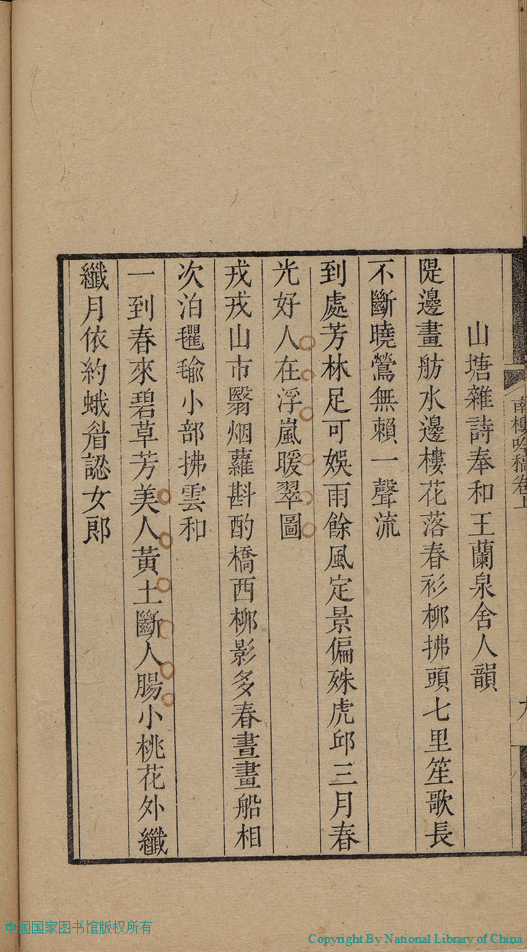 山塘雜詩奉和王蘭泉舍人韻
隄邊畫舫水邊樓花落春衫柳拂頭七里笙歌長
不斷曉鶯無賴一聲流
到處芳林足可娛雨餘風定景偏殊虎邱三月春
光好人在浮嵐暖翠圖
戎戎山市翳烟蘿斟酌橋西柳影多春晝畫船相
次泊氍毹小部拂雲和
一到春來碧草芳美人黃土斷人腸小桃花外纖
纖月依約蛾眉認女郎
南樓吟稿卷上
九
中国国家图书馆版权所有
Copyright By National Library of China